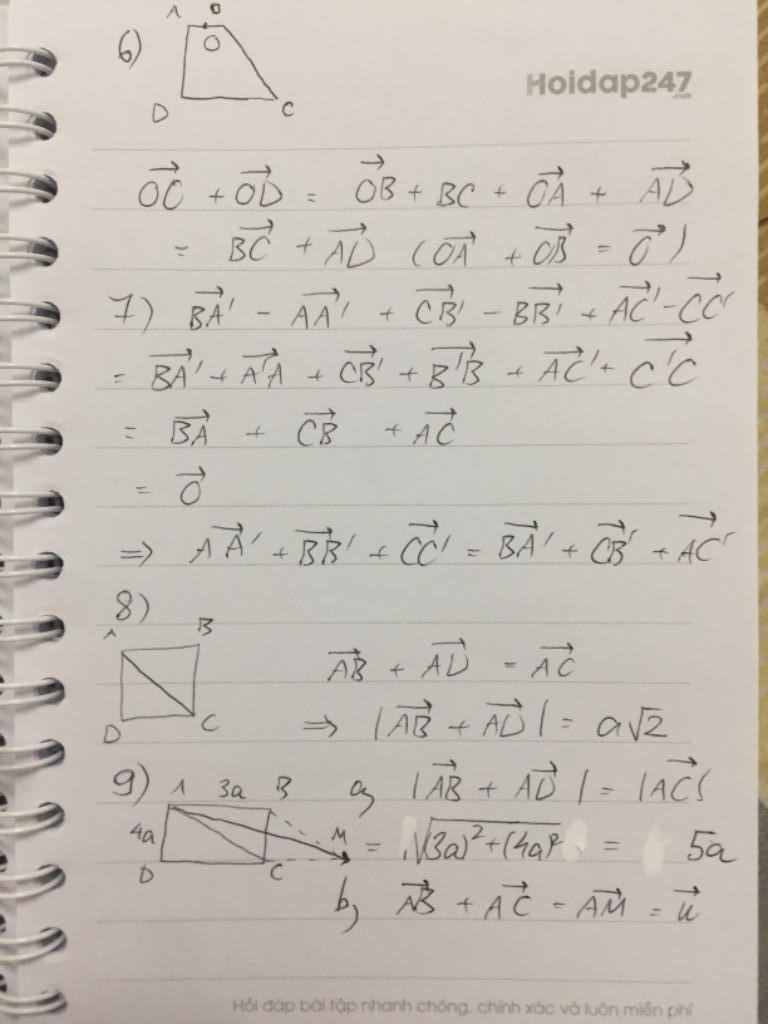 6) A B
O
D C
Hoidap247
.com
\vec{OC} + \vec{OD} = \vec{OB} + BC + \vec{OA} + \vec{AD}
= \vec{BC} + \vec{AD} (\vec{OA} + \vec{OB} = \vec{O})
7) \vec{BA'} - \vec{AA'} + \vec{CB'} - \vec{BB'} + \vec{AC'} - \vec{CC'}
= \vec{BA'} + \vec{A'A} + \vec{CB'} + \vec{B'B} + \vec{AC'} + \vec{C'C}
= \vec{BA} + \vec{CB} + \vec{AC}
= \vec{O}
=> \vec{AA'} + \vec{BB'} + \vec{CC'} = \vec{BA'} + \vec{CB'} + \vec{AC'}
8)
A B
\vec{AB} + \vec{AD} = \vec{AC}
D C => |\vec{AB} + \vec{AD}| = a√2
9) A 3a B a, |\vec{AB} + \vec{AD}| = |\vec{AC}|
4a M = √(3a)²+(4a)² = 5a
D C
b, \vec{AB} + \vec{AC} = \vec{AM} = \vec{u}
Hỏi đáp bài tập nhanh chóng, chính xác và luôn miễn phí